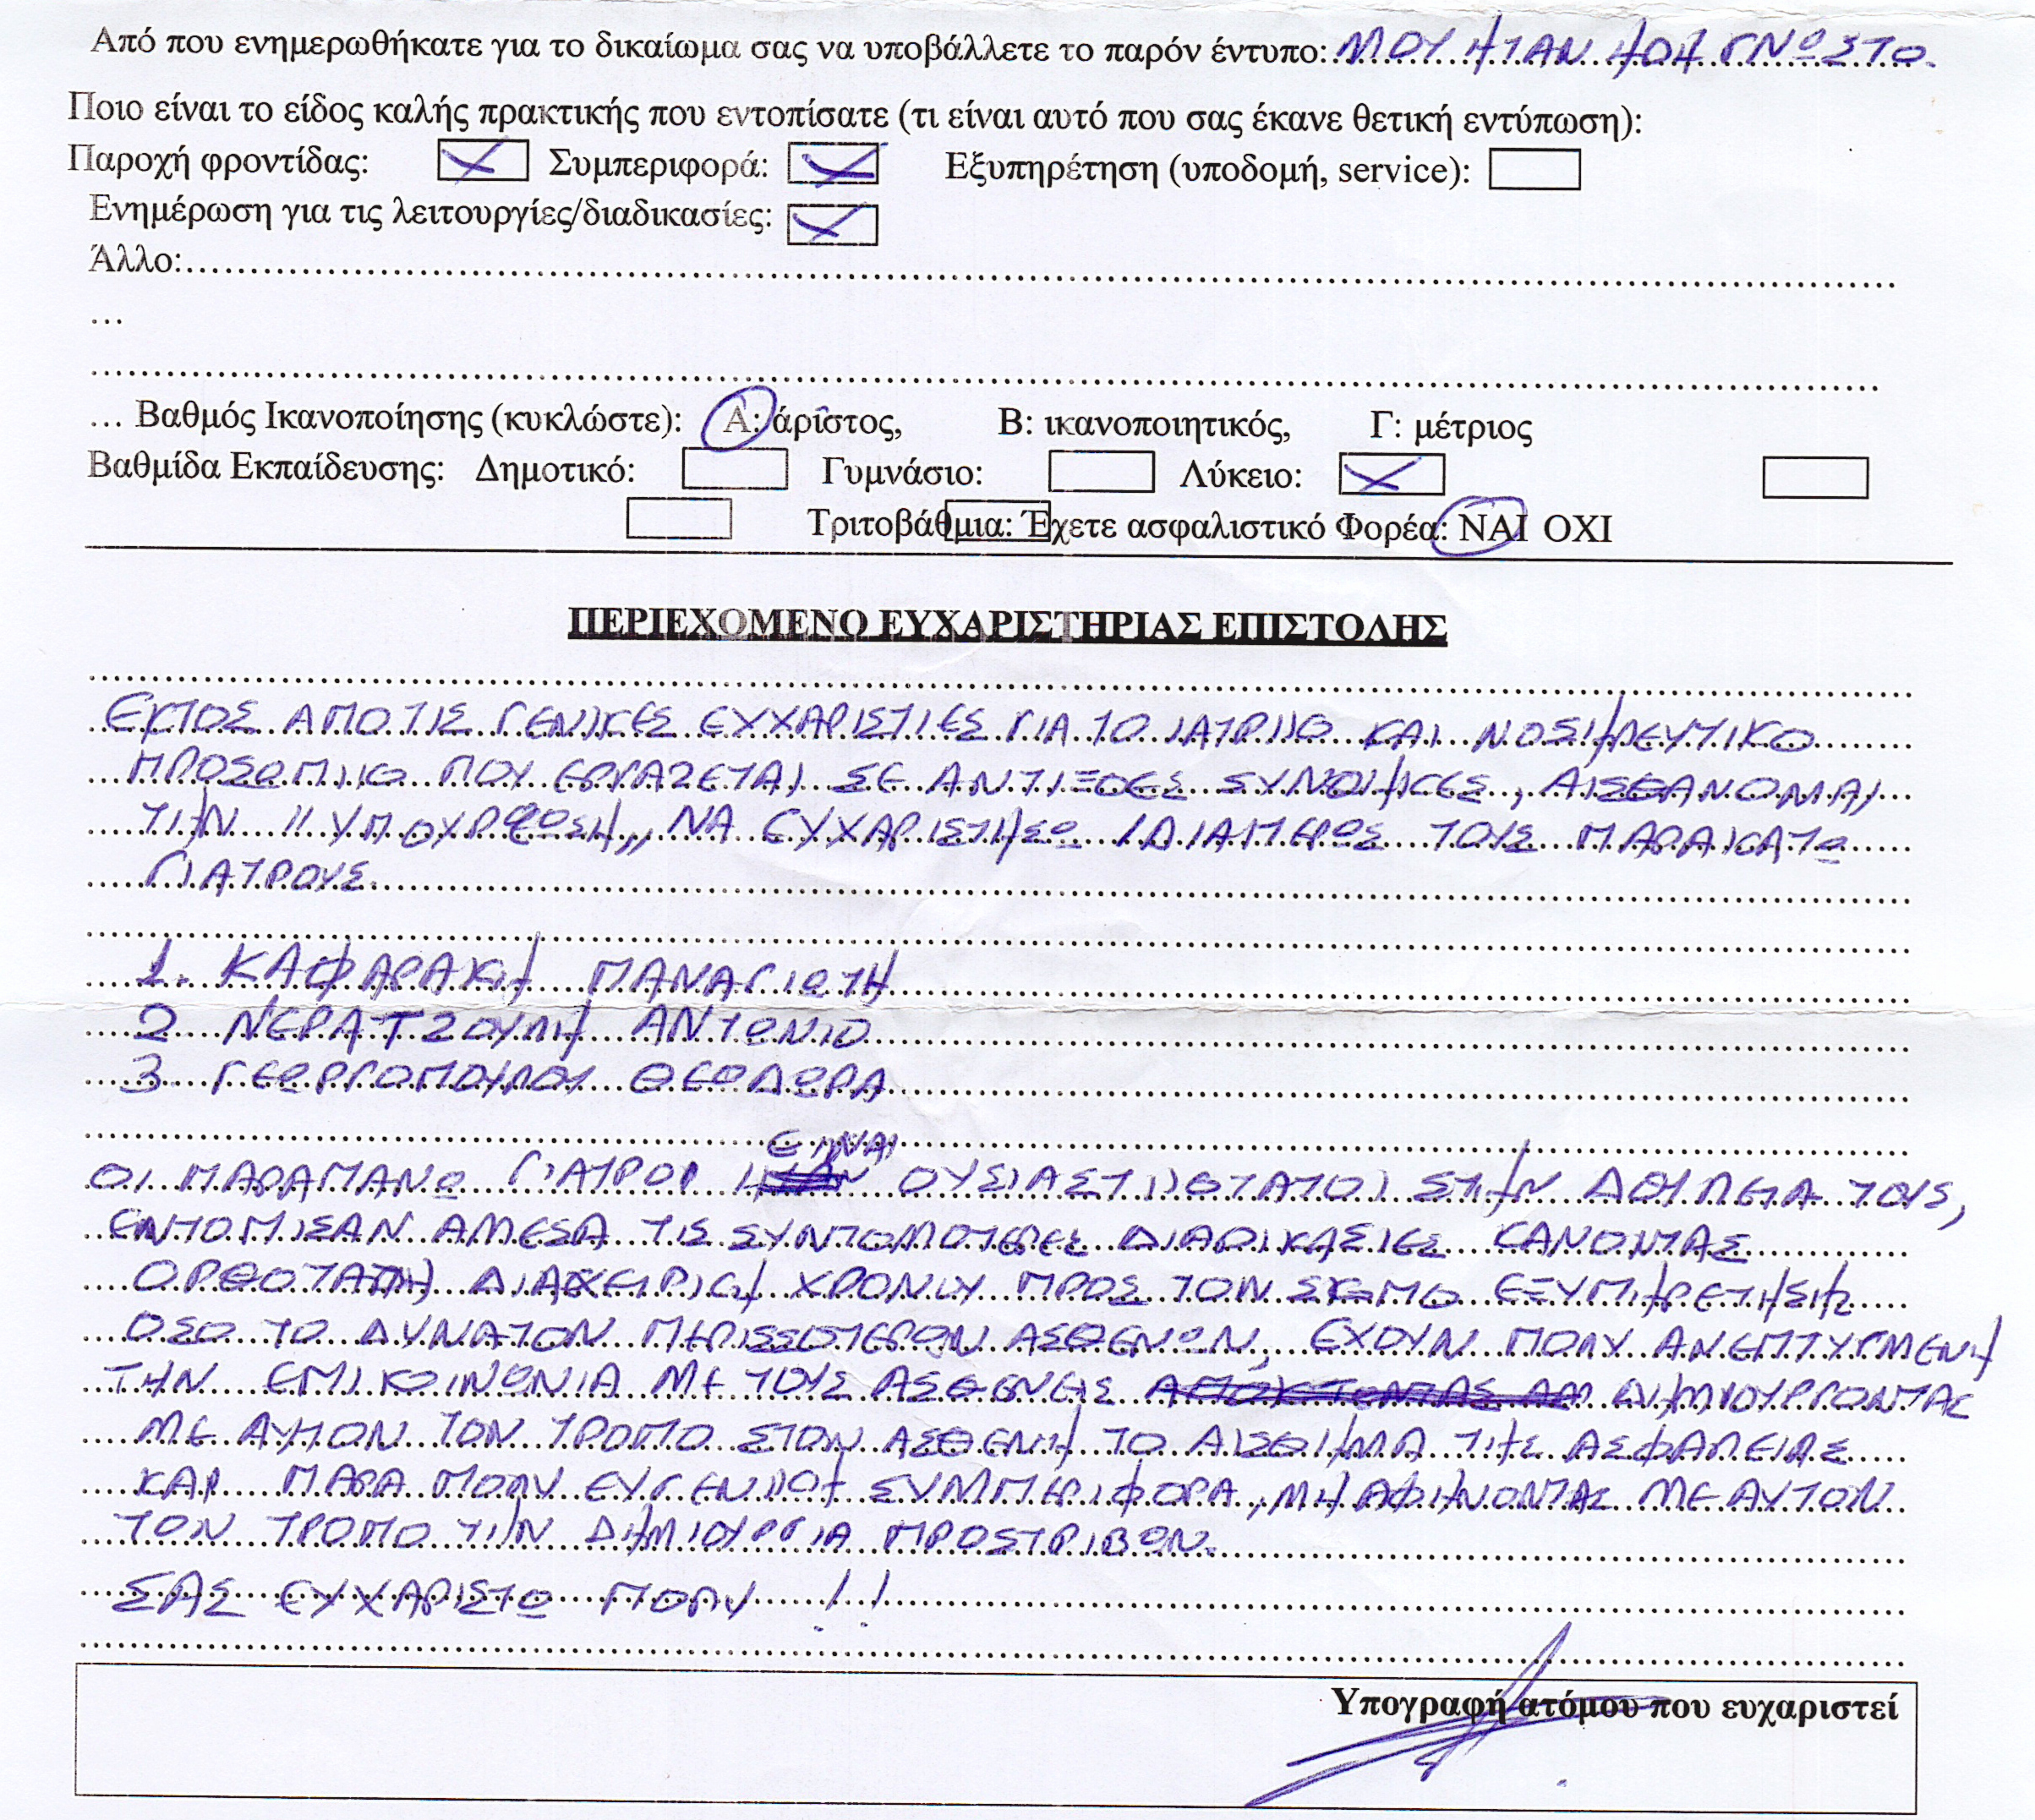 Από που ενημερωθήκατε για το δικαίωμα σας να υποβάλλετε το παρόν έντυπο: ΜΟΥ ΗΤΑΝ ΗΔΗ ΓΝΩΣΤΟ.
Ποιο είναι το είδος καλής πρακτικής που εντοπίσατε (τι είναι αυτό που σας έκανε θετική εντύπωση):
Παροχή φροντίδας: Συμπεριφορά: Εξυπηρέτηση (υποδομή, service):
Ενημέρωση για τις λειτουργίες/διαδικασίες:
Άλλο:
...
... Βαθμός Ικανοποίησης (κυκλώστε): Α: άριστος, Β: ικανοποιητικός, Γ: μέτριος
Βαθμίδα Εκπαίδευσης: Δημοτικό: Γυμνάσιο: Λύκειο:
Τριτοβάθμια: Έχετε ασφαλιστικό Φορέα: ΝΑΙ ΟΧΙ
ΠΕΡΙΕΧΟΜΕΝΟ ΕΥΧΑΡΙΣΤΗΡΙΑΣ ΕΠΙΣΤΟΛΗΣ
ΕΚΤΟΣ ΑΠΟ ΤΙΣ ΓΕΝΙΚΕΣ ΕΥΧΑΡΙΣΤΙΕΣ ΓΙΑ ΤΟ ΙΑΤΡΙΚΟ ΚΑΙ ΝΟΣΗΡΕΥΤΙΚΟ
ΠΡΟΣΩΠΙΚΟ ΠΟΥ ΕΡΓΑΖΕΤΑΙ ΣΕ ΑΝΤΙΞΟΕΣ ΣΥΝΘΗΚΕΣ, ΑΙΣΘΑΝΟΜΑΙ
ΤΗΝ "ΥΠΟΥΡΕΩΣΗ,, ΝΑ ΕΥΧΑΡΙΣΤΗΣΩ ΙΔΙΑΙΤΕΡΩΣ ΤΟΥΣ ΠΑΡΑΚΑΤΩ
ΓΙΑΤΡΟΥΣ
1. ΚΑΦΑΡΑΚΗ ΠΑΝΑΓΙΩΤΗ
2 ΝΕΡΑΤΖΟΥΛΗ ΑΝΤΩΝΙΟ
3 ΓΕΩΡΓΟΠΟΥΛΟΥ ΘΕΟΔΩΡΑ
ΕΙΝΑΙ
ΟΙ ΠΑΡΑΠΑΝΩ ΓΙΑΤΡΟΙ ΟΥΣΙΑΣΤΙΚΟΤΑΤΟΙ ΣΤΗΝ ΔΟΥΛΕΙΑ ΤΟΥΣ,
ΕΝΤΟΠΙΣΑΝ ΑΜΕΣΑ ΤΙΣ ΣΥΝΤΟΜΟΤΕΡΕΣ ΔΙΑΔΙΚΑΣΙΕΣ ΚΑΝΟΝΤΑΣ
ΟΡΘΟΤΑΤΗ ΔΙΑΧΕΙΡΙΣΗ ΧΡΟΝΟΥ ΠΡΟΣ ΤΟΝ ΣΚΟΠΟ ΕΞΥΠΗΡΕΤΗΣΗΣ
ΟΣΟ ΤΟ ΔΥΝΑΤΟΝ ΠΕΡΙΣΣΟΤΕΡΩΝ ΑΣΘΕΝΩΝ, ΕΧΟΥΝ ΠΟΛΥ ΑΝΕΠΤΥΓΜΕΝΗ
ΤΗΝ ΕΠΙΚΟΙΝΩΝΙΑ ΜΕ ΤΟΥΣ ΑΣΘΕΝΕΙΣ ΔΗΜΙΟΥΡΓΟΝΤΑΣ
ΜΕ ΑΥΤΟΝ ΤΟΝ ΤΡΟΠΟ ΣΤΟΝ ΑΣΘΕΝΗ ΤΟ ΑΙΣΘΗΜΑ ΤΗΣ ΑΣΦΑΛΕΙΑΣ
ΚΑΙ ΠΑΡΑ ΠΟΛΥ ΕΥΓΕΝΙΚΗ ΣΥΜΠΕΡΙΦΟΡΑ, ΜΗ ΑΦΗΝΟΝΤΑΣ ΜΕ ΑΥΤΟΝ
ΤΟΝ ΤΡΟΠΟ ΤΗΝ ΔΗΜΙΟΥΡΓΙΑ ΠΡΟΣΤΡΙΒΩΝ.
ΣΑΣ ΕΥΧΑΡΙΣΤΩ ΠΟΛΥ !!
Υπογραφή ατόμου που ευχαριστεί